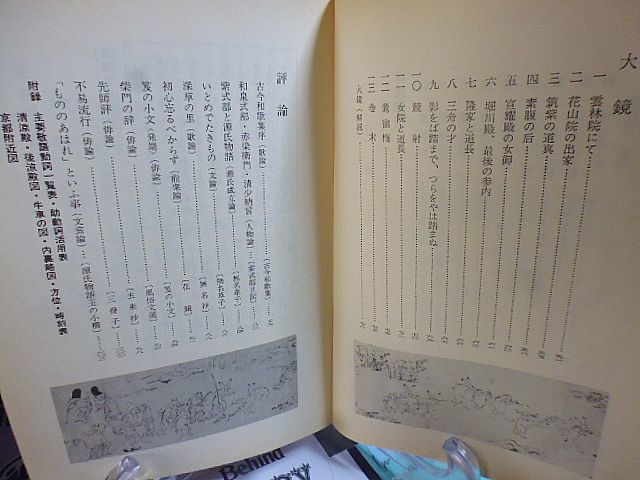 大鏡
一 雲林院にて
二 花山院の出家
三 筑紫の道真
四 素腹の后
五 宣耀殿の女御
六 堀川殿、最後の参内
七 隆家と道長
八 三舟の才
九 影をば踏まで、つらをやは踏まぬ
一〇 競射
一一 女院と道長
一二 鶯宿梅
一三 巻末
大鏡(解説)
評論
古今和歌集序(歌論)(古今和歌集)
和泉式部・赤染衛門・清少納言(人物論)(紫式部日記)
紫式部と源氏物語(源氏成立論)(無名草子)
いとめでたきもの(文論)(無名草子)
深草の里(歌論)(無名抄)
初心忘るべからず(能楽論)(花鏡)
笈の小文(発端)(俳論)(笈の小文)
柴門の辞(俳論)(風俗文選)
先師評(俳論)(去来抄)
不易流行(俳論)(三冊子)
「もののあはれ」といふ事(文芸論)(源氏物語玉の小櫛)
附録 主要敬語動詞一覧表・助動詞活用表
清涼殿・後涼殿図・牛車の図・内裏略図・方位・時刻表
京都附近図
Behind